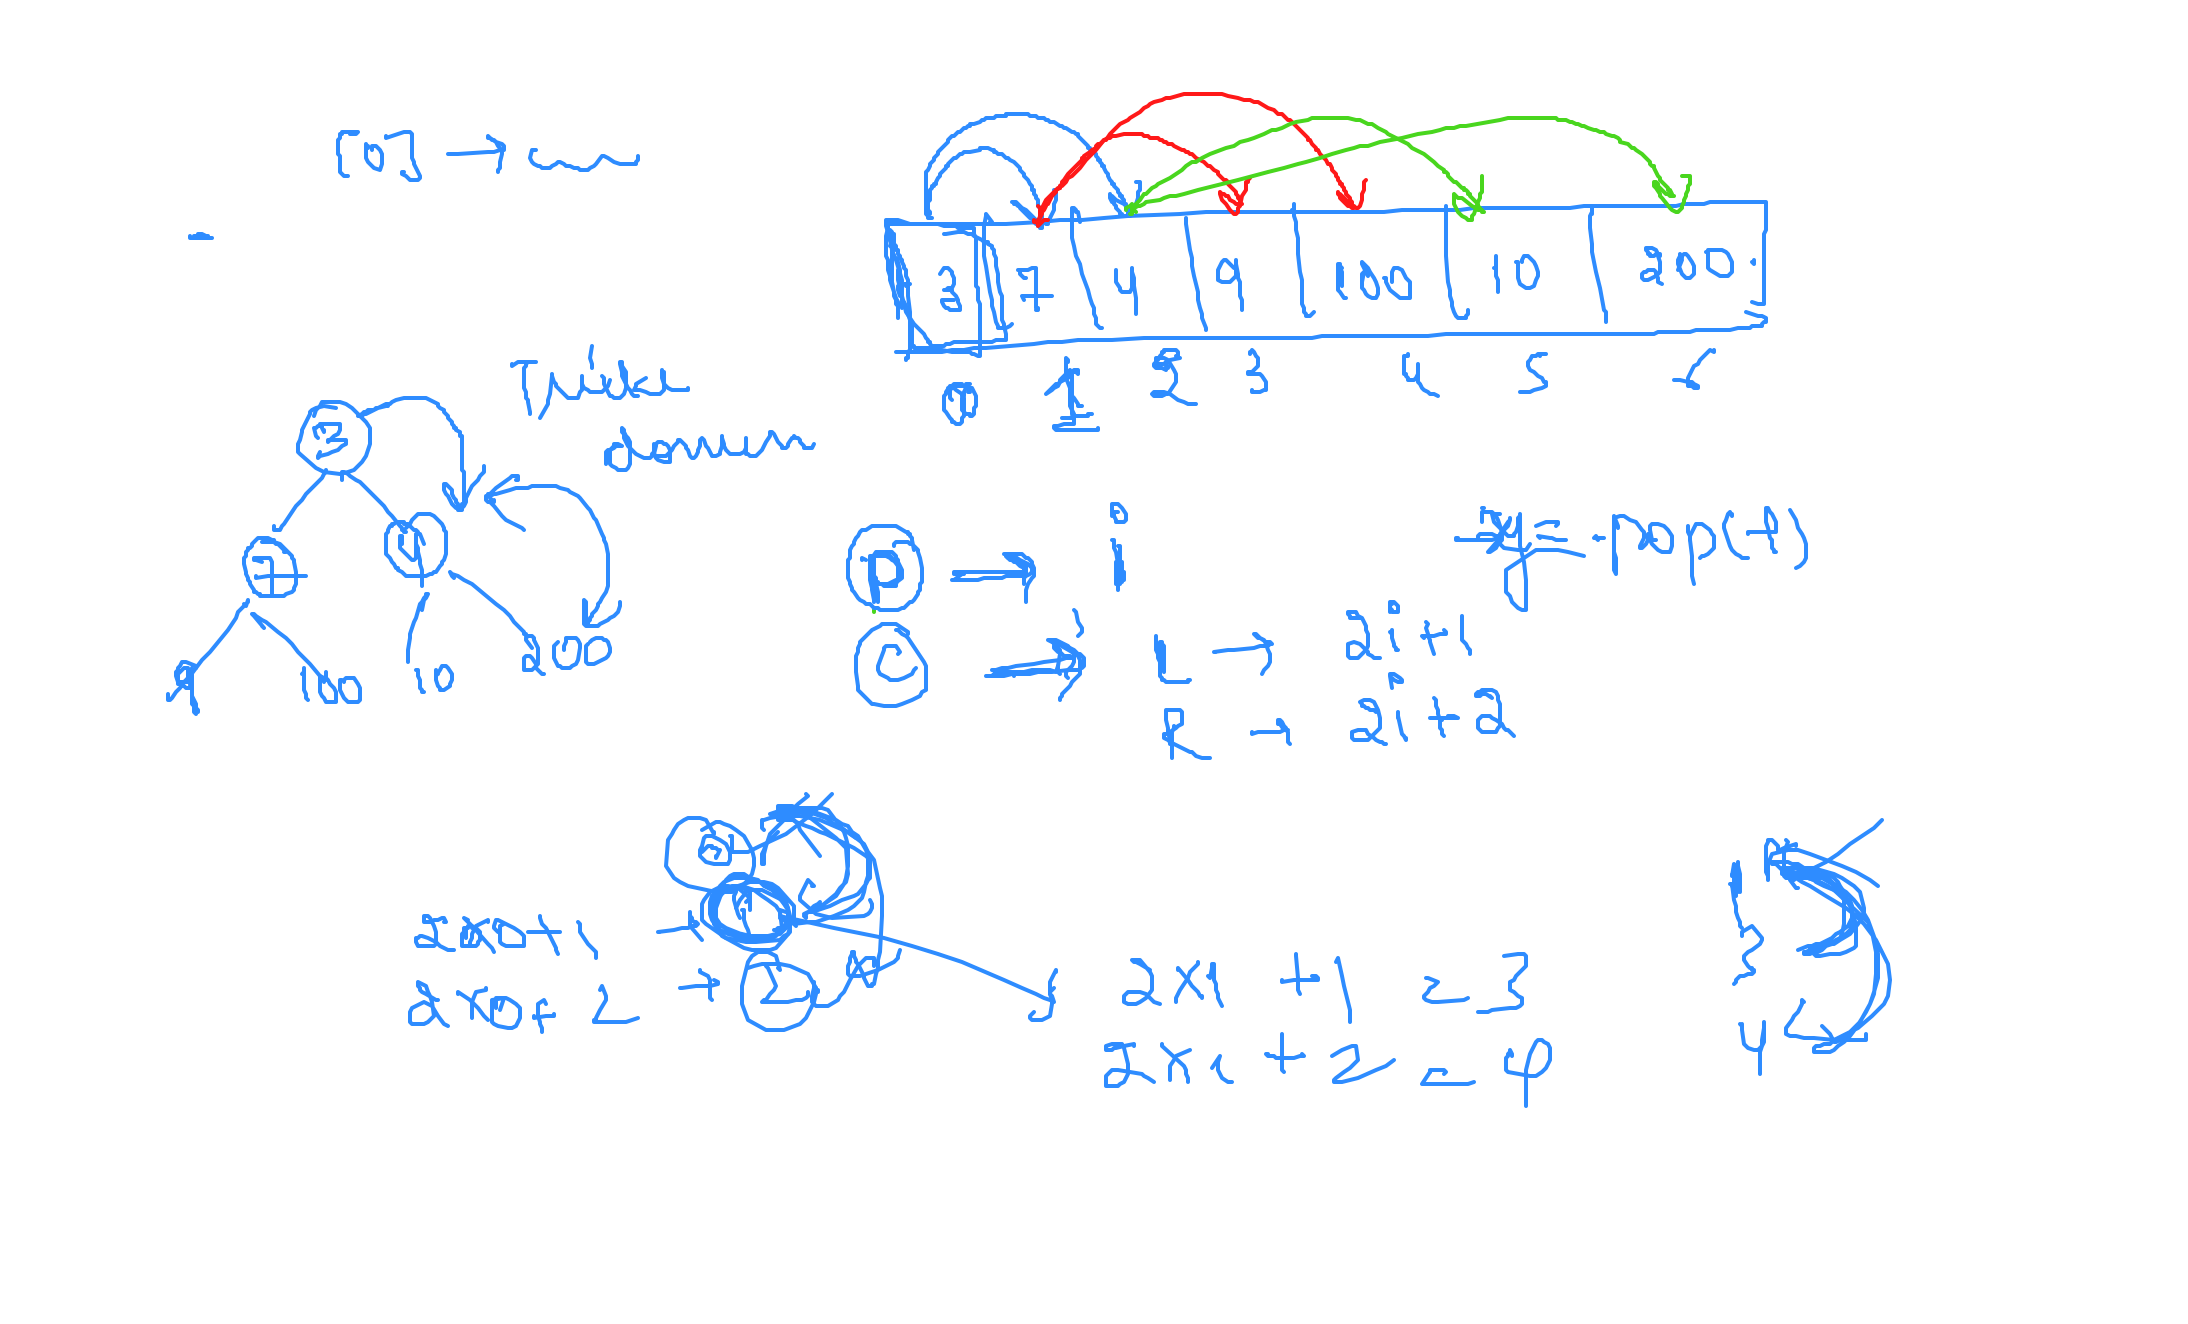 [0] →
3 7 4 9 100 10 200
0 1 2 3 4 5 6
Trickle
down
3
7 4
9 100 10 200
P → i
C → L → 2i+1
R → 2i+2
y = pop(
0
2x0+1 → 1
2x0+2 → 2
2x1 + 1 = 3
2x1 + 2 = 4
1
3
4